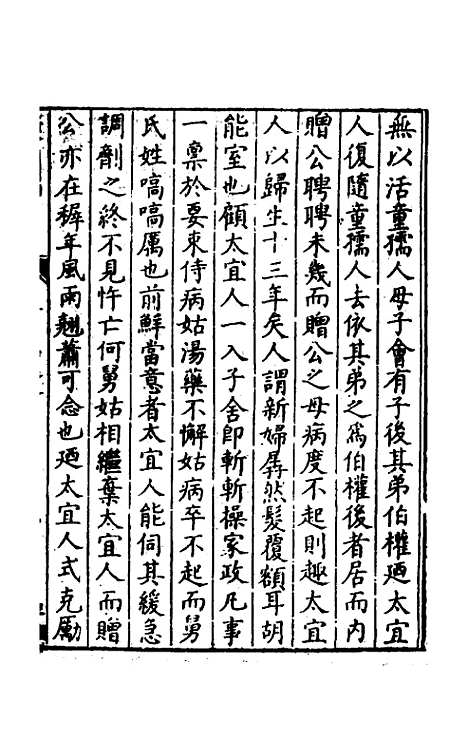 無以活童孺人母子會有子後其弟伯權廼太宜
人復隨童孺人去依其弟之爲伯權後者居而内
贈公聘聘未幾而贈公之母病度不起則趣太宜
人以歸生十三年矣人謂新婦孱然髮覆額耳胡
能室也顧太宜人一入子舍即斬斬操家政凡事
一稟於要束侍病姑湯藥不懈姑病卒不起而舅
氏姓嗃嗃厲也前鮮當意者太宜人能伺其緩急
調劑之終不見忤亡何舅姑相繼棄太宜人而贈
公亦在穉年風雨翹蕭可念也廼太宜人式克勵